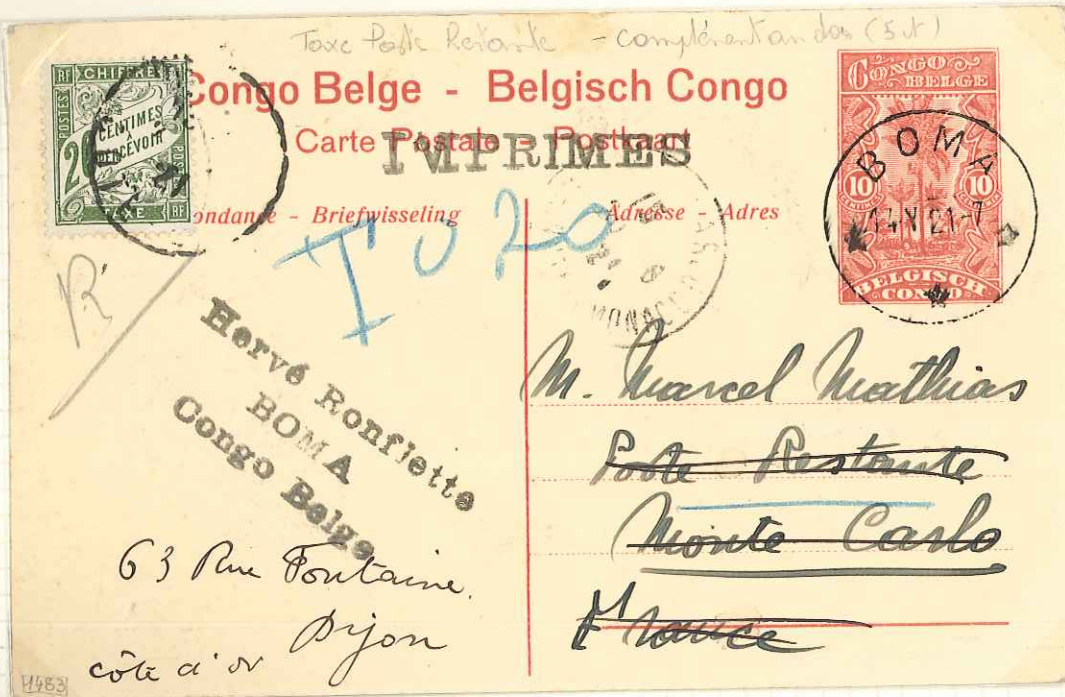 Taxe Poste Restante -
RF CHIFFRE
POSTES
20 CENTIMES
À
PERCEVOIR
TAXE RF
Congo Belge - Belgisch Congo
Carte Postale - Postkaart
IMPRIMES
ondance - Briefwisseling
Adresse - Adres
T 0 20
CONGO
BELGE
10 10
CENTIMES
BELGISCH
CONGO
BOMA
14 V 21-7
R
Hervé Ronflette
BOMA
Congo Belge
M. Marcel Mathias
Poste Restante
Monte Carlo
France
63 Rue Fontaine
Dijon
côte d'or
1483